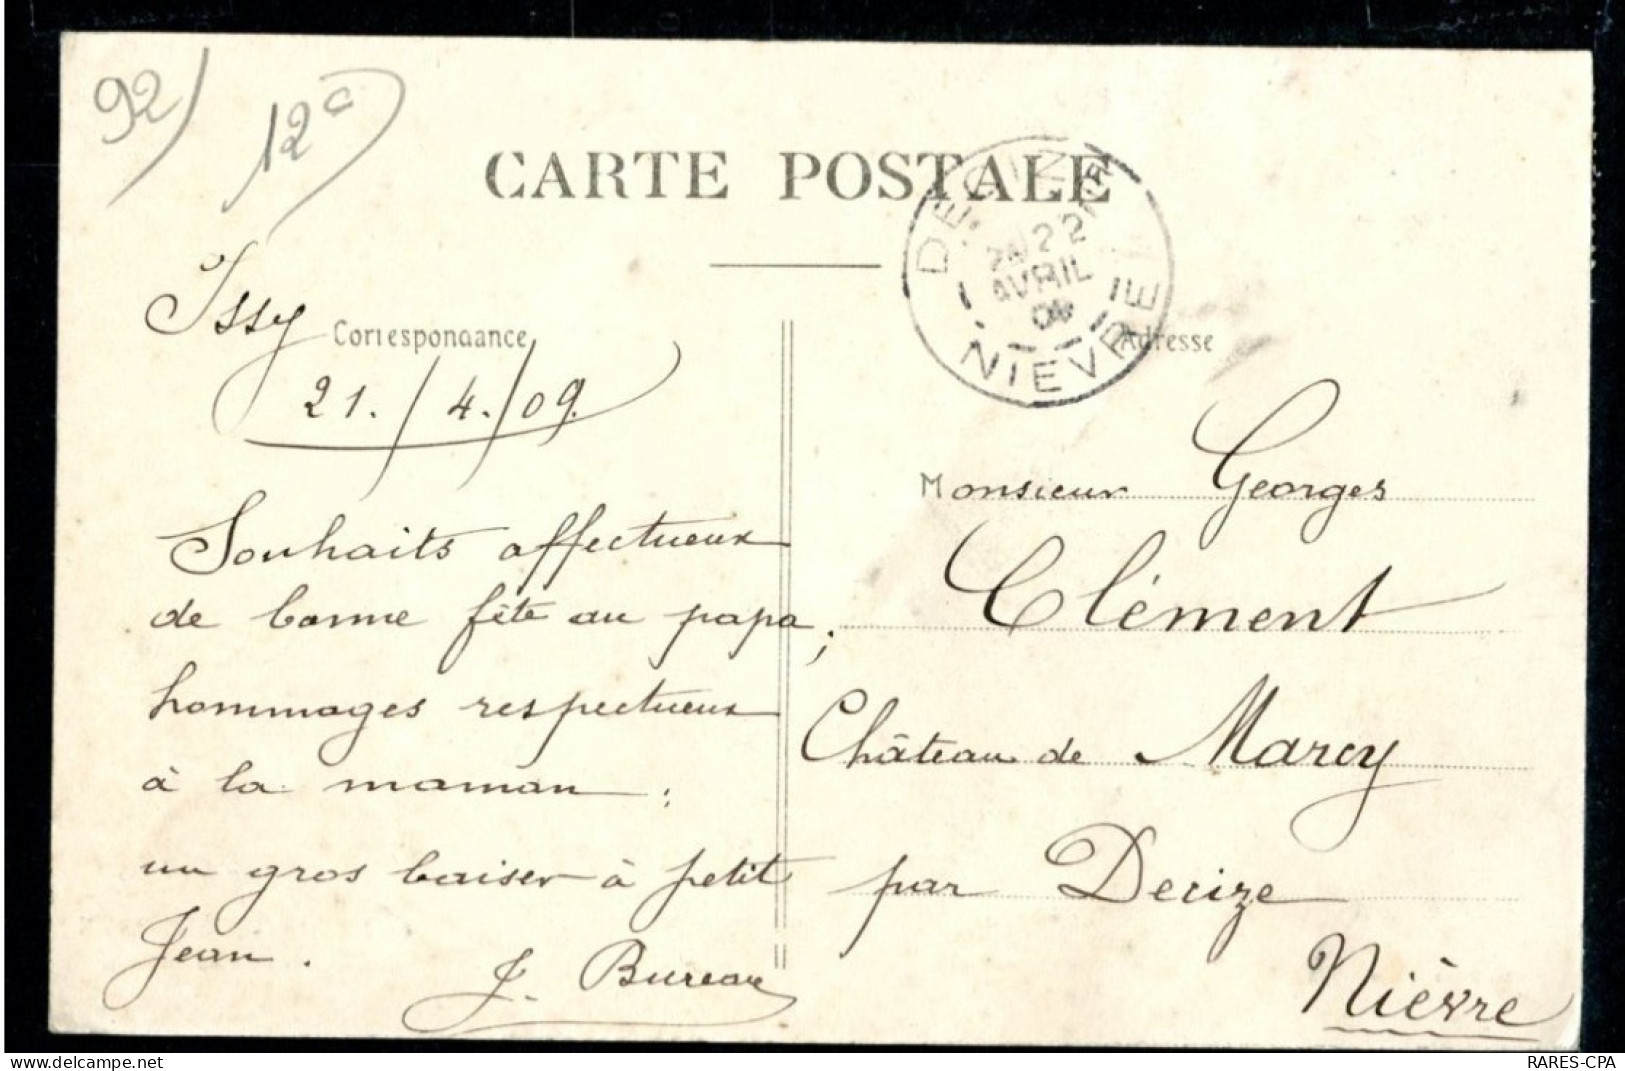 92/
12ᵃ
CARTE POSTALE
DECIZE
22
AVRIL
09
NIEVRE
Issy
Correspondance
Adresse
21./4./09.
Monsieur Georges
Souhaits affectueux
Clément
de bonne fête au papa;
hommages respectueux
Château de Marcy
à la maman;
un gros baiser à petit
par Decize
Jean.
J. Bureau
Nièvre
www.delcampe.net
RARES-CPA